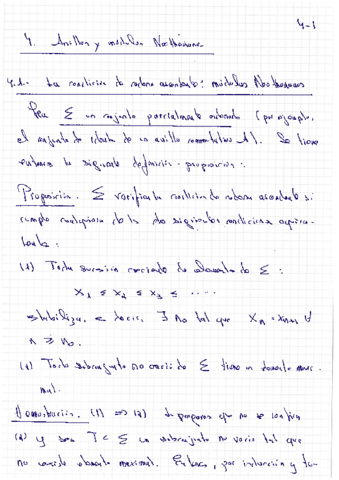 4-1
4. Anillos y módulos Noetherianos
4.1.- La condición de cadena ascendente: módulos Noetherianos
Sea Σ un conjunto parcialmente ordenado (por ejemplo,
el conjunto de ideales de un anillo conmutativo A). Se tiene
entonces la siguiente definición-proposición:
Proposición. Σ verifica la condición de cadena ascendente si
cumple cualquiera de las dos siguientes condiciones equiva-
lentes:
(1) Toda sucesión creciente de elementos de Σ:
x₁ ≤ x₂ ≤ x₃ ≤ ....
estabiliza, es decir, ∃ n₀ tal que xₙ = xₙ₊₁ ∀
n ≥ n₀.
(2) Todo subconjunto no vacío de Σ tiene un elemento maxi-
mal.
Demostración. (1) ⇒ (2) que no se
(2) y sea T ⊂ Σ un subconjunto no vacío tal que
no elemento maximal. Entonces, por inducción y